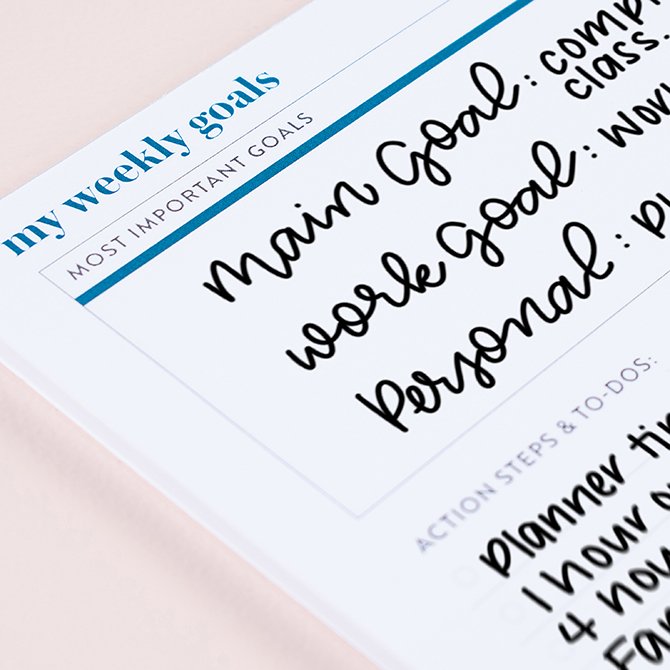 my weekly goals
MOST IMPORTANT GOALS
Main Goal:
class.
work Goal:
Personal:
ACTION STEPS & TO-DOS:
Planner
1 hour
4